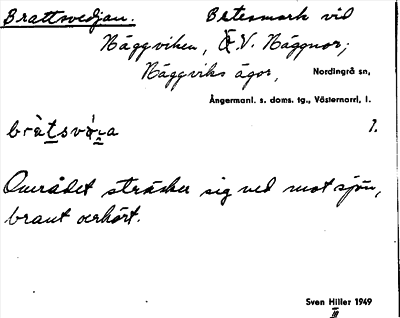 Brattsvedjan. Betesmark vid
Näggviken, Ö.V. Näggnor;
Näggviks ägor, Nordingrå sn,
Ångermanl. s. doms. tg., Västernorrl. l.
1.
Området sträcker sig ned mot sjön,
brant oerhört.
Sven Hiller 1949
III